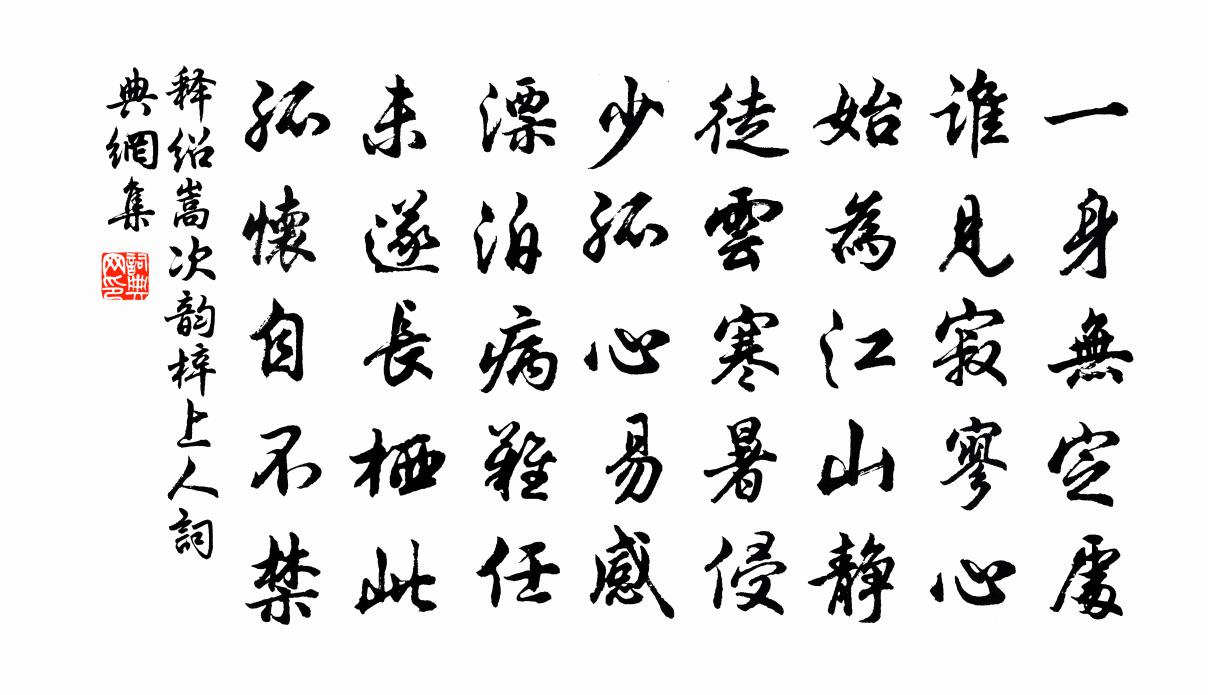 一身無定處
誰見寂寥心
始為江山静
徒雲寒暑侵
少孤心易感
漂泊病難任
未遂長栖此
孤懷自不禁
释绍嵩次韵梓上人詞
典網集
詞典
网印